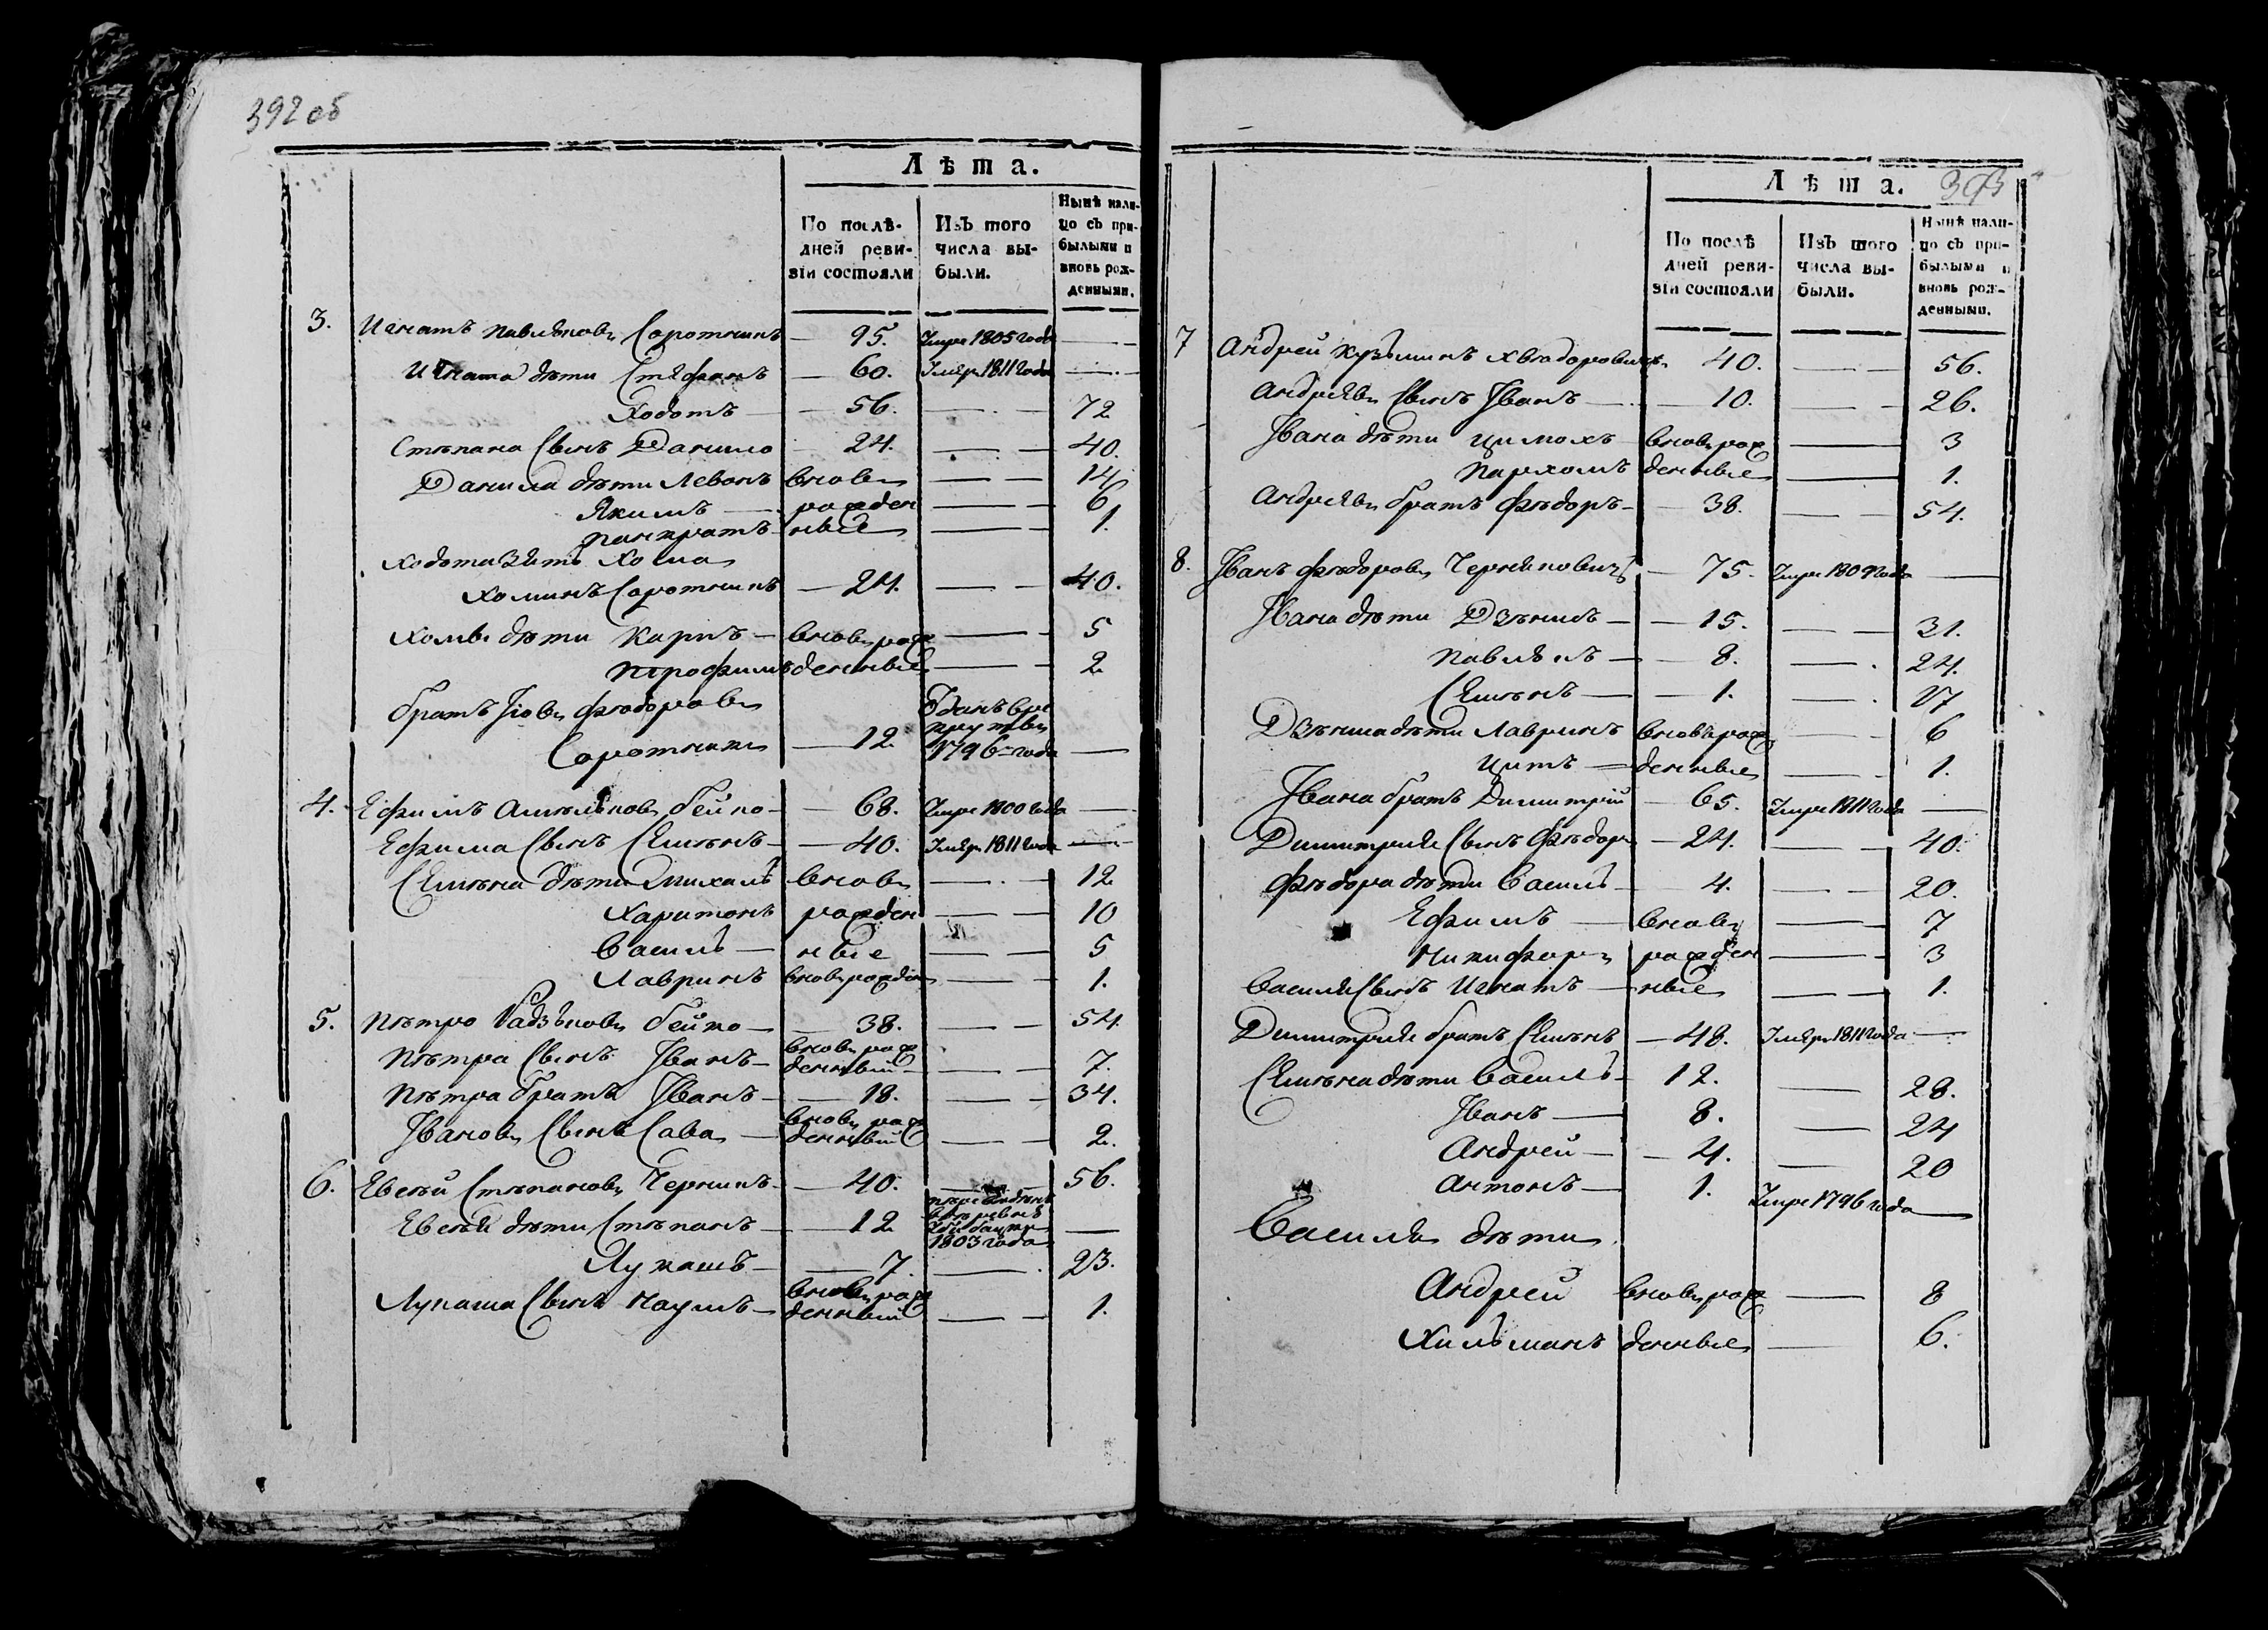 392 об
Лѣта.
По послѣ-
дней реви-
зіи состояли
Изъ того
числа вы-
были.
Нынѣ нали-
цо съ при-
былыми и
вновь рож-
денными.
3. Игнатъ Павлюковъ Саротникъ — 95. Умре 1805 года —
Игната дѣти Стефанъ — 60. Умер 1811 года —
Ходотъ — 56. — 72
Стѣпана сынъ Данило — 24. — 40.
Данила дѣти Левонъ вновь — 14
Якимъ — рожден — 6
Панкратъ ные — 1.
Ходота зять Хома
Хоминъ Саротникъ — 24. — 40.
Хомы дѣти Карпъ — вновь рож — 5
Трофимъ денные — 2
братъ Іовъ Фѣодоровъ
Саротникъ — 12 1796 года —
4. Ефимъ Амѣльяновъ Бейко — 68. Умре 1800 года —
Ефима сынъ Сѣмѣнъ — 40. Умер 1811 года —
Сѣмѣна дѣти Михалъ вновь — 12
Харитонъ рожден — 10
Василь — ные — 5
Лавринъ вновь рожден — 1.
5. Пѣтро Радзѣновъ Бейко — 38. — 54
Пѣтра сынъ Іванъ — вновь рож
денный — 7.
Пѣтра братъ Іванъ — 18. — 34.
Івановъ сынъ Сава — вновь рож
денный — 2.
6. Евсѣй Стѣпановъ Чернякъ — 40. — 56.
Евсѣя дѣти Стѣпанъ — 12
1803 года —
Лукашъ — 7. — 23.
Лукаша сынъ Наумъ — вновь рож
денный — 1.
393
Лѣта.
По послѣ
дней реви-
зіи состояли
Изъ того
числа вы-
были.
Нынѣ нали-
цо съ при-
былыми и
вновь рож-
денными.
7 Андрей Кузьминъ Хвядоровичъ 40. — 56.
Андрѣевъ сынъ Іванъ — 10. — 26.
Івана дѣти Цимохъ вновь рож — 3
Пархомъ денные — 1.
Андрѣевъ братъ Фѣдоръ — 38. — 54.
8. Іванъ Фѣдоровъ Черняковичъ — 75. Умре 1809 года —
Івана дѣти Дзѣнисъ — 15. — 31.
Павлюкъ — 8. — 24.
Сѣмѣнъ — 1. — 17
Дзѣниса дѣти Лавринъ вновь рож — 6
Цитъ — денные — 1.
Івана братъ Димитрій — 65. Умре 1811 года —
Димитрія сынъ Фѣдоръ — 24. — 40.
Фѣдора дѣти Василь — 4. — 20.
Ефимъ — вновь — 7
Никифоръ рожден — 3
Василя сынъ Игнатъ — ные — 1.
Димитрія братъ Сѣмѣнъ — 48. Умер 1811 года —
Сѣмѣна дѣти Василь — 12. — 28.
Іванъ — 8. — 24
Андрей — 4. — 20
Антонъ — 1. Умре 1796 года —
Василя дѣти
Андрей вновь рож — 8
Хильманъ денные — 6.